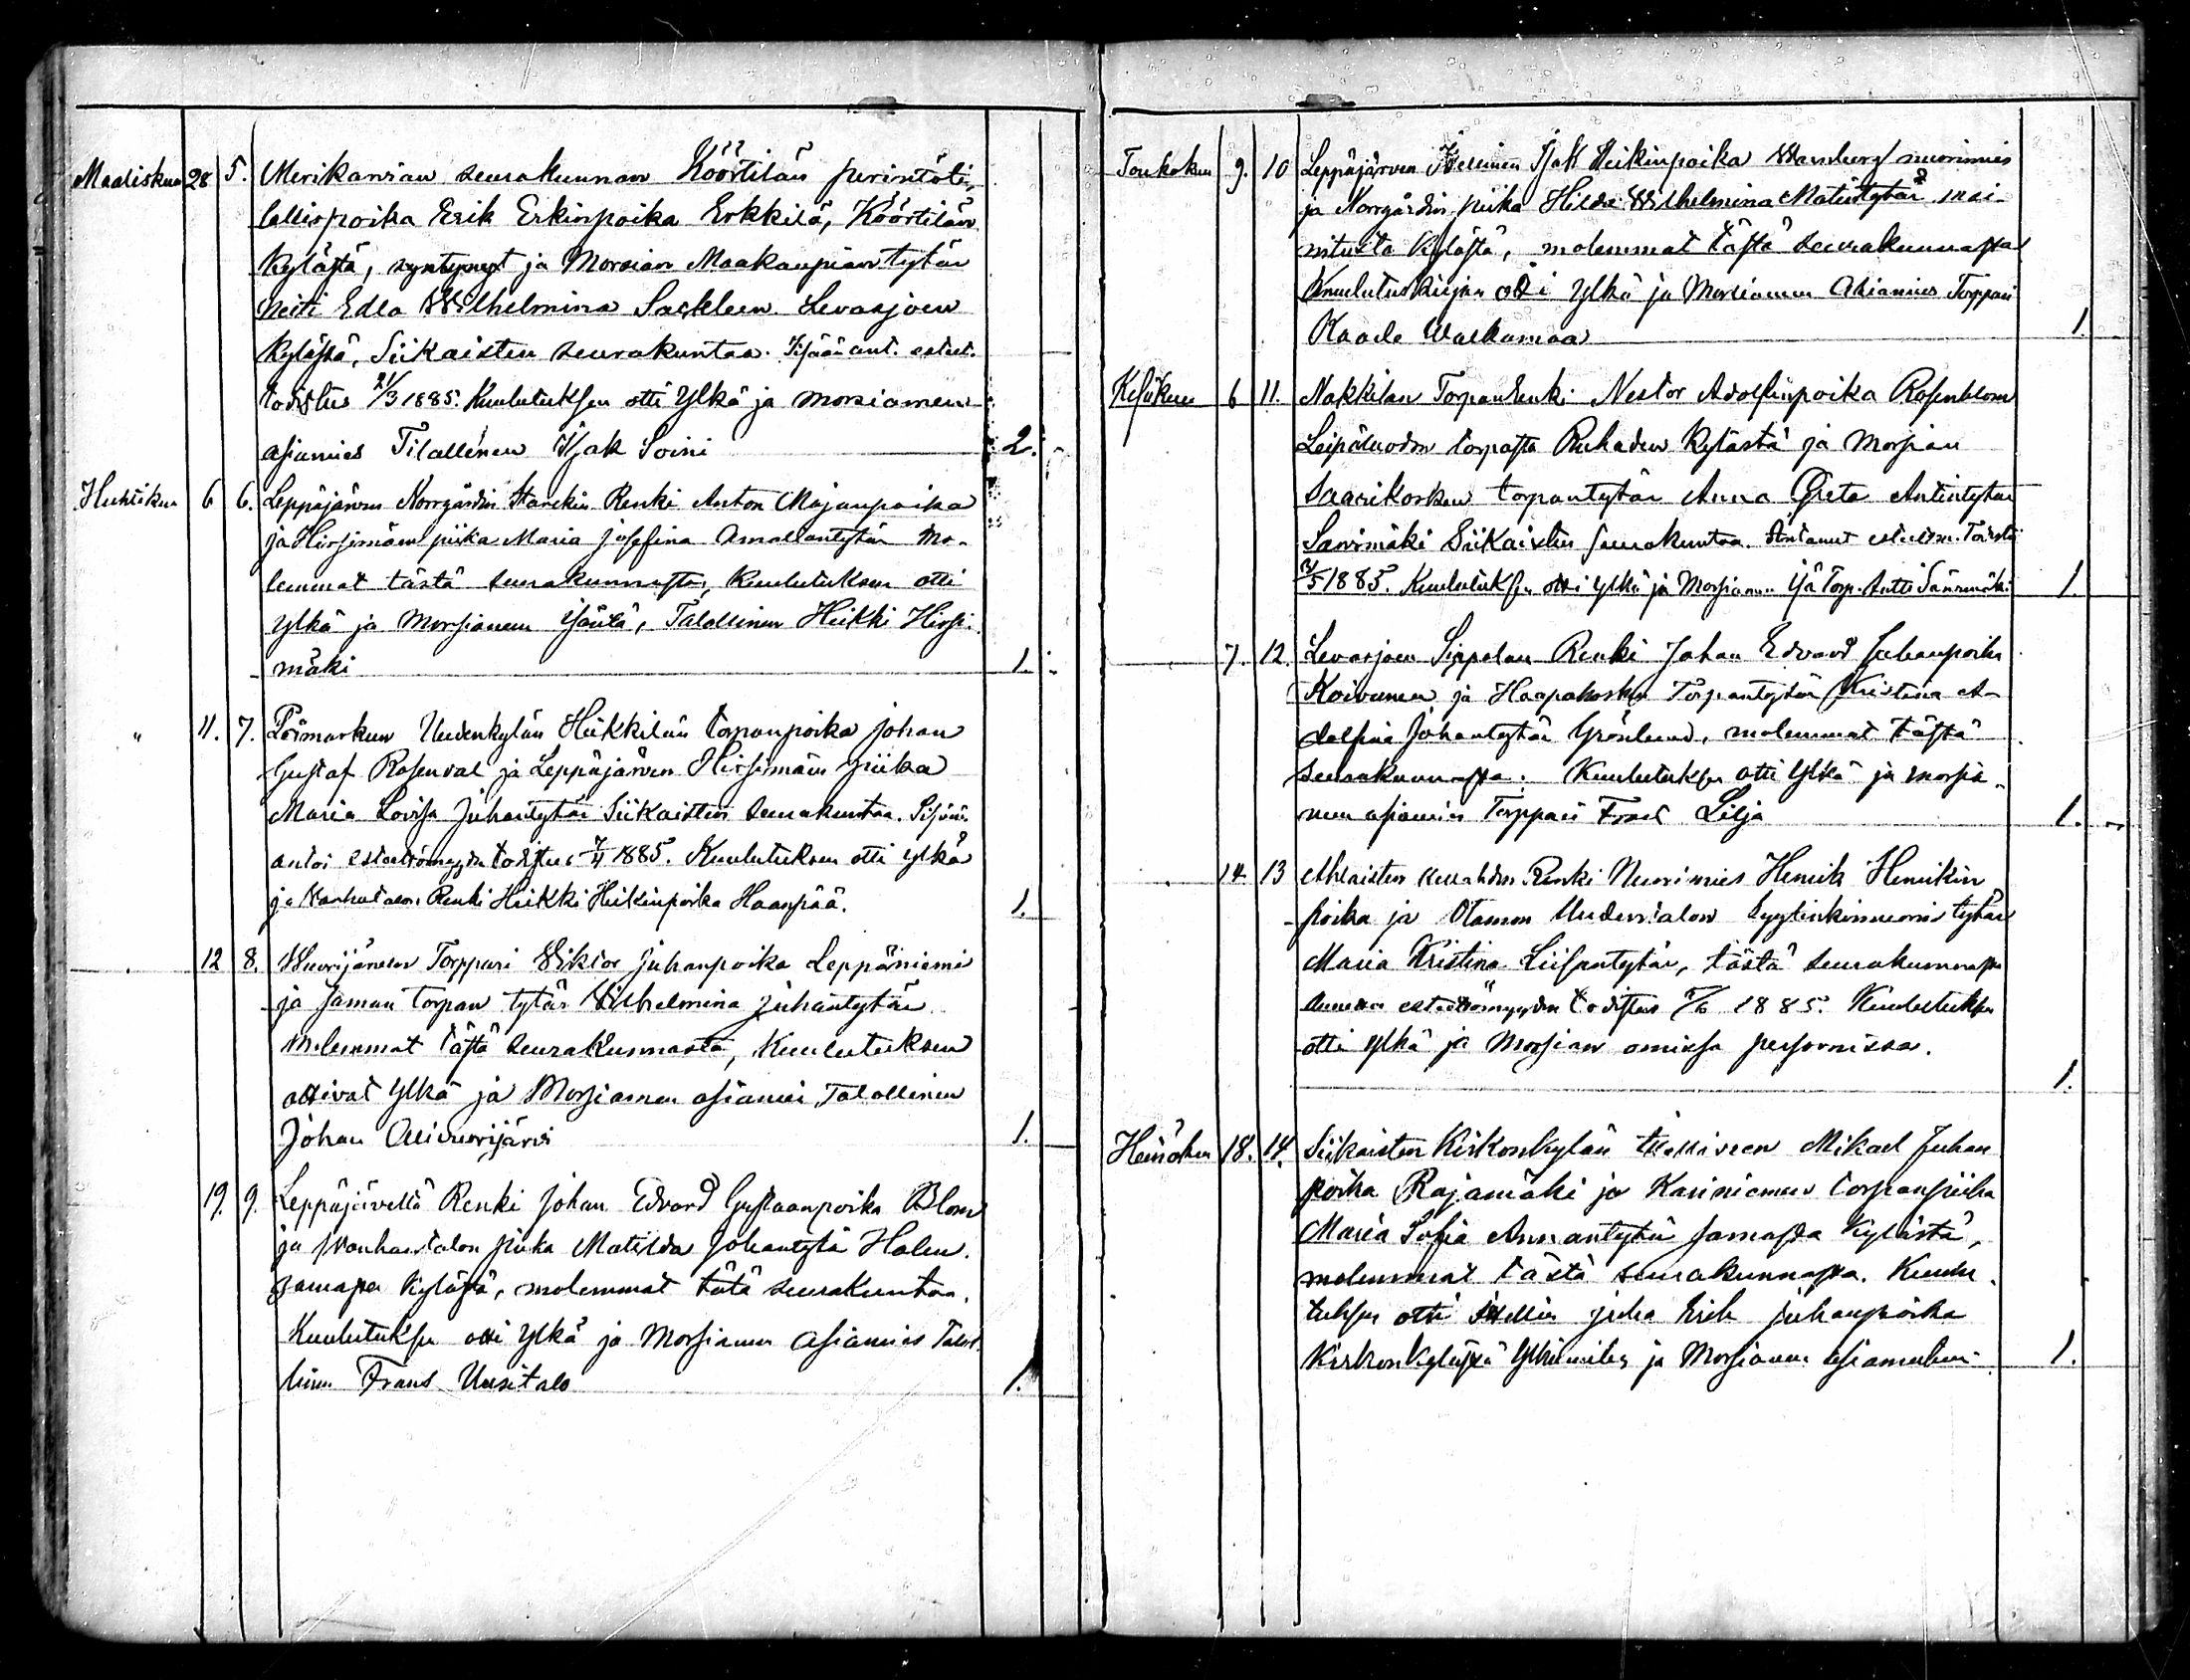 Maaliskuu 28 5. Merikarvian seurakunnan Köörtilän perintöti-
lallispoika Erik Erkinpoika Erkkilä, Köörtilän
kylästä, syntynyt ja Morsian Maakaupiantytär
Neiti Edla Wilhelmina Levasjoen
kylästä, Siikaisten seurakuntaa. ant. estet.
todistus 21/3 1885. Kuulutuksen otti Ylkä ja morsiamen
asiamies Tilallinen Isak Soini 2.
Huhtikuu 6 6. Leppäjärven Norrgårdin Starckin Renki Anton Majanpoika
ja Hirsimäen piika Maria Josefina Amaliantytär mo-
lemmat tästä seurakunnasta, Kuulutuksen otti
Ylkä ja Morsiamen Isäntä, Talollinen Heikki Hirsi-
mäki 1.
" 11. 7. Pörmarkun Uudenkylän Heikkilän torpanpoika Johan
Gustaf Rosenval ja Leppäjärven Hirsimäen piika
Maria Lovisa Juhantytär Siikaisten seurakuntaa.
antoi todistus 7/4 1885. Kuulutuksen otti ylkä
ja Wanhatalon Renki Heikki Heikinpoika Haanpää. 1.
12 8. Wuorijärven Torppari Wiktor Juhanpoika Leppäniemi
ja saman torpan tytär Wilhelmina Juhantytär
molemmat tästä seurakunnasta, Kuulutuksen
ottivat Ylkä ja Morsiamen asiamies, Talollinen
Johan Alivuorijärvi 1.
19. 9. Leppäjärveltä Renki Johan Edvard Gustaanpoika Blom
ja Wanhantalon piika Matilda Johantytä Holm.
samasta kylästä, molemmat tätä seurakuntaa.
Kuulutuksen otti Ylkä ja Morsiamen asiamies Talol-
linen Frans Uusitalo 1.
Toukokuu 9. 10 Leppäjärven Itsellinen Isak Heikinpoika nuorimies
ja Norrgårdin piika Hilda Wilhelmina Matintytär mai-
nitusta kylästä, molemmat tästä seurakunnasta
Kuulutuskirjan otti Ylkä ja Morsiamen Asiamies Torppari
Kaarle Walkamaa 1.
Kesäkuu 6 11. Nakkilan Torpanrenki Nestor Adolfinpoika Rosenblom
Leipäluodon torpasta Ruhaden kylästä ja Morsian
Saarikosken torpantytär Anna Greta Antintytär
Sarvimäki Siikaisten seurakuntaa. Antanut
/5 1885. Kuulutuksen otti Ylkä ja Morsiamen Isä Torp. Antti Sarvimäki 1.
7. 12. Levasjoen Sippolan Renki Johan Edvard Juhanpoika
Koivunen ja Haapakosken Torpantytär Kristina A-
dolfina Johantytär Grönlund, molemmat tästä
seurakunnasta. Kuulutuksen otti Ylkä ja morsia-
men asiamies Torppari Frans Lilja 1.
14. 13 Ahlaisten Renki Nuorimies Henrik Henrikin
poika ja Otamon Uudentalon tytär
Maria Kristina Liisantytär, tästä seurakunnasta
todistus /6 1885. Kuulutuksen
otti Ylkä ja Morsian omissa personissa.
1.
Heinäkuu 18. 14. Siikaisten Kirkonkylän Mikael Juhan
poika Rajamäki ja Kariniemen torpanpiika
Maria Sofia Annantytär samasta kylästä,
molemmat tästä seurakunnasta. Kuulu-
tuksen otti Itsellis Juha Erik Juhanpoika
Kirkonkylästä Ylkämiehen ja Morsiamen asiamiehenä 1.